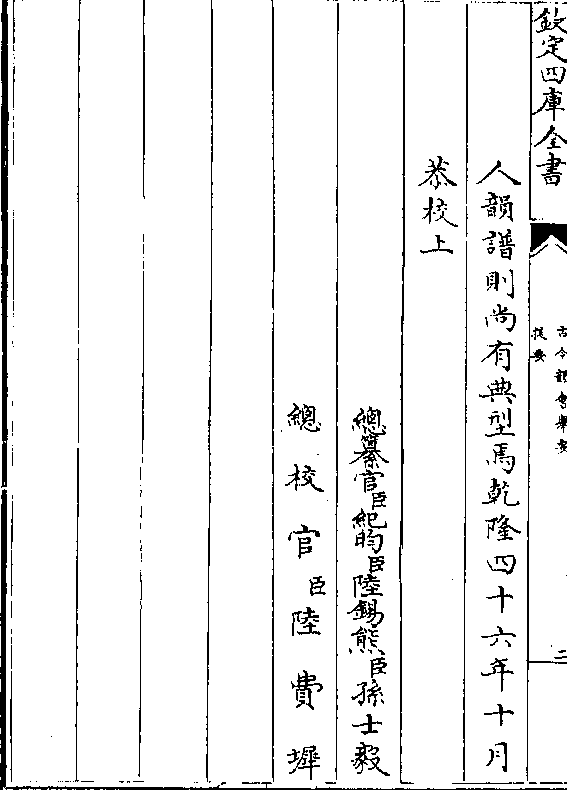 欽定四庫全書
古今韻會舉要
提要
二
人韻譜則尚有典型焉乾隆四十六年十月
恭校上
總纂官臣紀昀臣陸錫熊臣孫士毅
總校官臣陸費墀